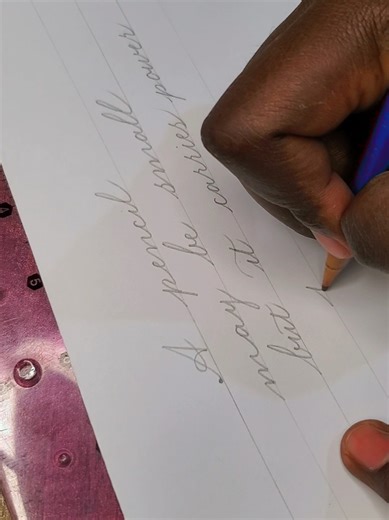 A pencil
may be small
but it carries power
4
5